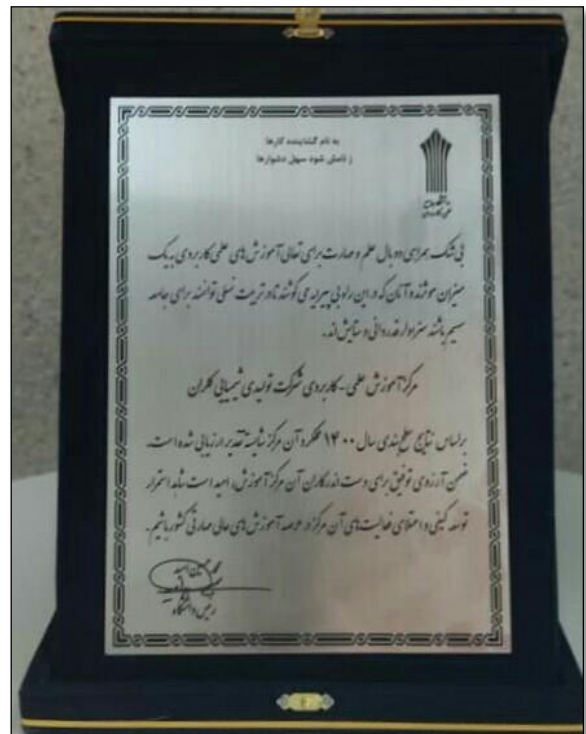 به نام گشاینده کارها
ز نامش شود سهل دشوارها
دانشگاه جامع
علمی کاربردی
بی شک همراهی دو بال علم و مهارت برای تعالی آموزش های علمی کاربردی به یک
میزان موثرند و آنان که در این راه بی پیرایه می کوشند تا در تربیت نسلی توانمند برای جامعه
سهیم باشند سزاوار قدردانی و ستایش اند.
مرکز آموزش علمی - کاربردی شرکت تولیدی شیمیایی کلران
براساس نتایج سطح بندی سال ۱۴۰۰ عملکرد آن مرکز شایسته تقدیر ارزیابی شده است.
ضمن آرزوی توفیق برای دست اندرکاران آن مرکز آموزش، امید است شاهد استمرار
توسعه کیفی و اعتلای فعالیت های آن مرکز در عرصه آموزش های عالی مهارتی کشور باشیم.
محمدحسین امید
رییس دانشگاه